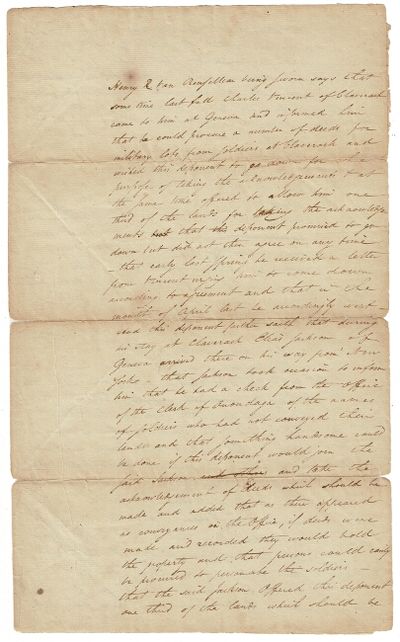 Henry R Van Renssellear being sworn says that
some time last fall Charles Vincent of Claverack
came to him at Geneva and informed him
that he could procure a number of deeds for
military lots from soldiers at Claverack and
wished this deponent to go down for the
purpose of taking the acknowledgements & at
the same time offered to allow him one
third of the lands for taking the acknowledge
ments that the deponent promised to go
down but did not then agree on any time
– that early last spring he received a letter
from Vincent urging him to come down
according to agreement and that in the
month of April last he accordingly went –
and this deponent further saith that during
his stay at Claverack Chas Jackson of
Geneva arrived there on his way from New
York – that Jackson took occasion to inform
him that he had a check from the Office
of the Clerk of Onondaga of the names
of soldiers who had not conveyed their
lands and that something handsome could
be done if this deponent would join the
said Jackson and take the
acknowledgement of deeds which should be
made and added that as there appeared
no conveyances in the Office, if deeds were
made and recorded they would hold
the property and that persons could easily
be procured to personate the soldiers –
that the said Jackson Offered this deponent
one third of the lands which should be